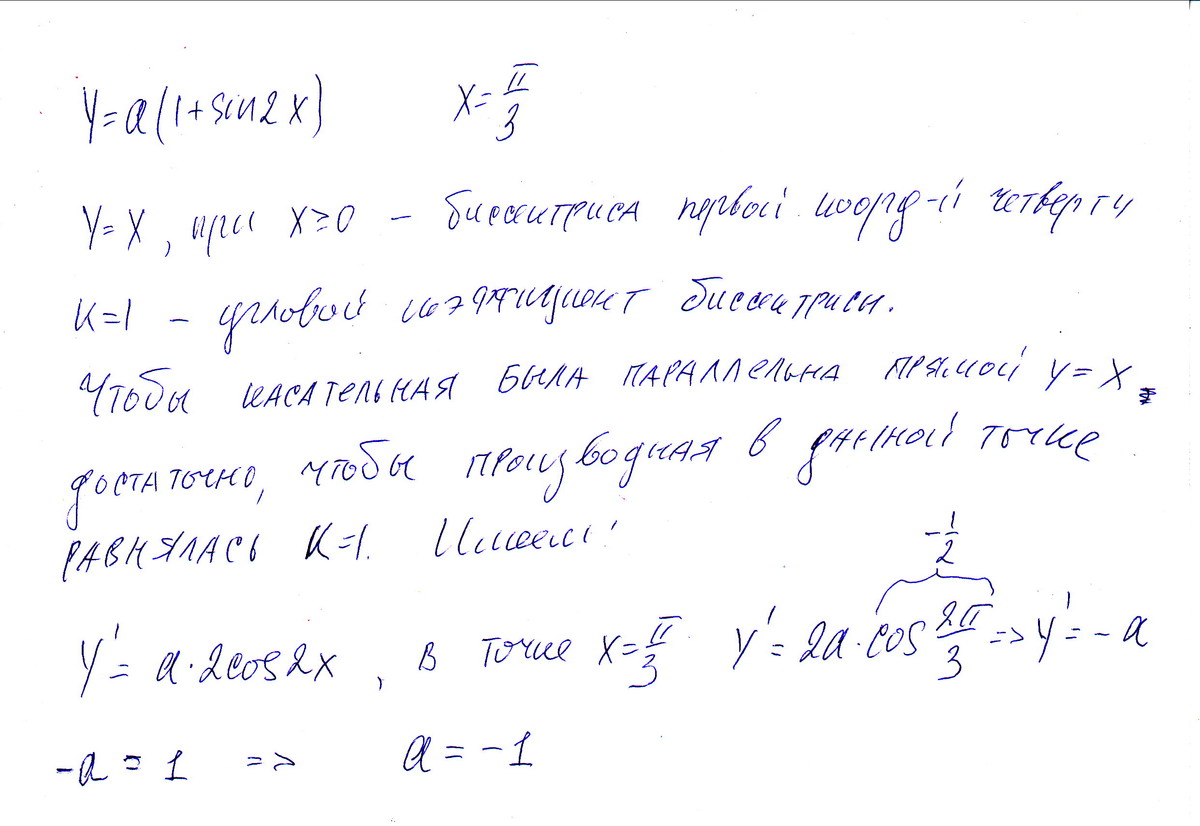 y=a(1+sin2x) x=π/3
y=x, при x≥0 – биссектриса первой коорд-й четверти
k=1 – угловой коэффициент биссектрисы.
Чтобы касательная была параллельна прямой y=x,
достаточно, чтобы производная в данной точке
равнялась k=1. Имеем:
-1/2
y'=a·2cos2x, в точке x=π/3 y'=2a·cos 2π/3 => y'=-a
-a=1 => a=-1